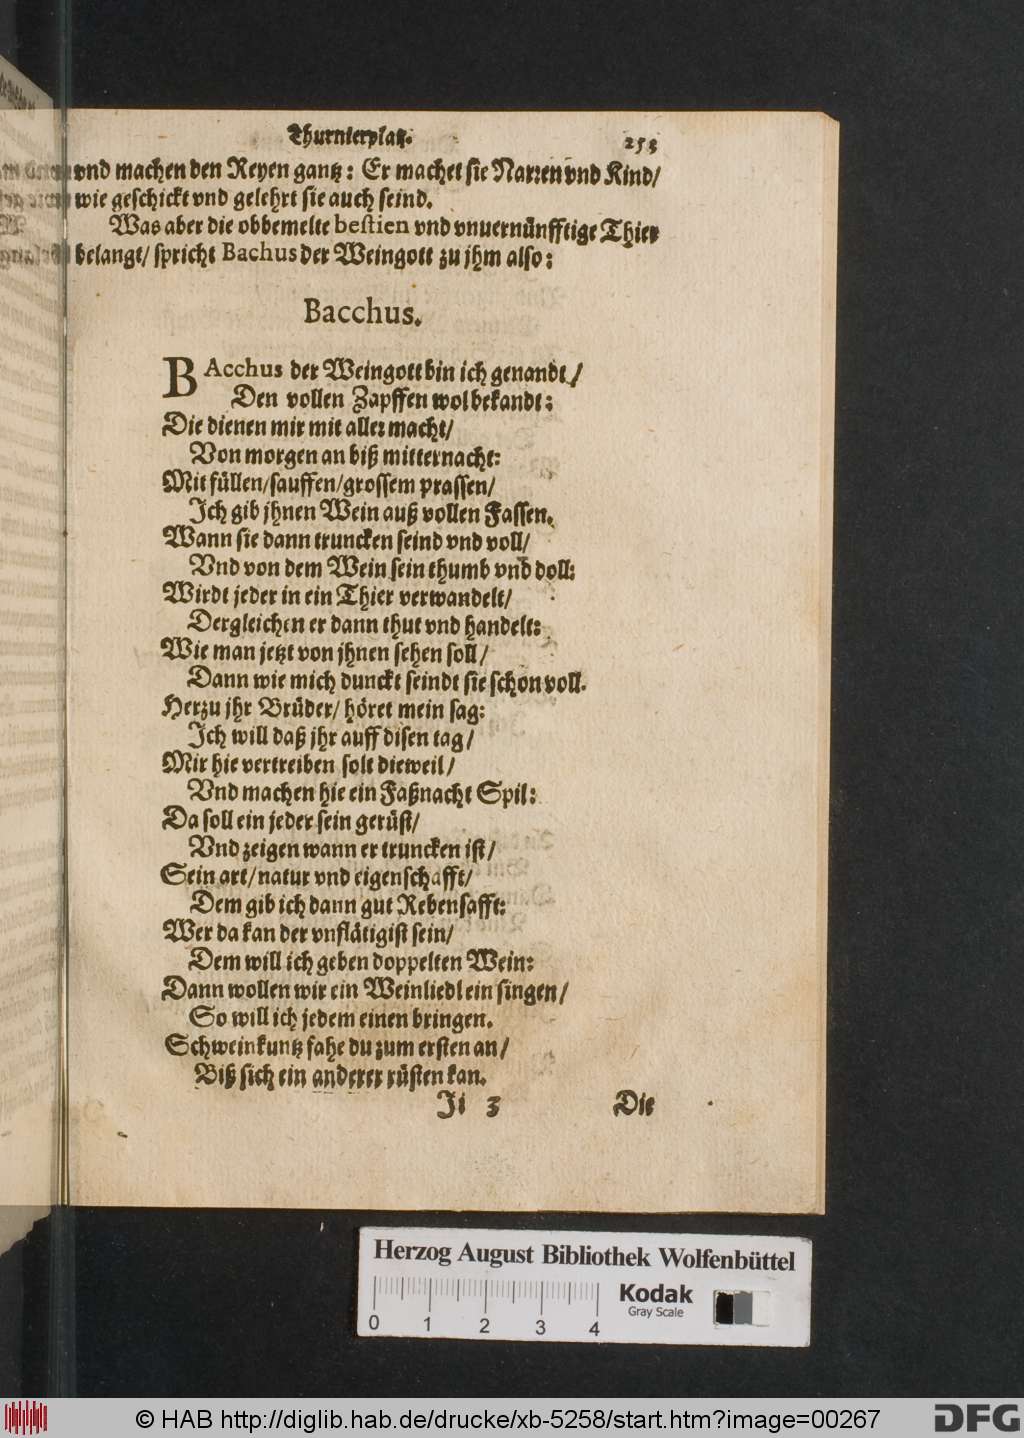 Thurnierplatz. 253
vnd machen den Reyen gantz: Er machet sie Narren vnd Kind/
wie geschickt vnd gelehrt sie auch seind.
Was aber die obbemelte bestien vnd vnuernünfftige Thier
belangt/ spricht Bachus der Weingott zu jhm also:
Bacchus.
BAcchus der Weingott bin ich genandt/
Den vollen Zapffen wol bekandt:
Die dienen mir mit aller macht/
Von morgen an biß mitternacht:
Mit füllen/sauffen/grossem prassen/
Ich gib jhnen Wein auß vollen Fassen.
Wann sie dann truncken seind vnd voll/
Vnd von dem Wein sein thumb vnd doll:
Wirdt jeder in ein Thier verwandelt/
Dergleichen er dann thut vnd handelt:
Wie man jetzt von jhnen sehen soll/
Dann wie mich dunckt seindt sie schon voll.
Herzu jhr Brüder/ höret mein sag:
Ich will daß jhr auff disen tag/
Mir hie vertreiben solt dieweil/
Vnd machen hie ein Faßnacht Spil:
Da soll ein jeder sein gerüst/
Vnd zeigen wann er truncken ist/
Sein art/natur vnd eigenschafft/
Dem gib ich dann gut Rebensafft:
Wer da kan der vnflätigist sein/
Dem will ich geben doppelten Wein:
Dann wollen wir ein Weinliedlein singen/
So will ich jedem einen bringen.
Schweinkuntz fahe du zum ersten an/
Biß sich ein anderer rüsten kan.
Ii 3 Die
Herzog August Bibliothek Wolfenbüttel
Kodak
Gray Scale
0 1 2 3 4
© HAB http://diglib.hab.de/drucke/xb-5258/start.htm?image=00267
DFG